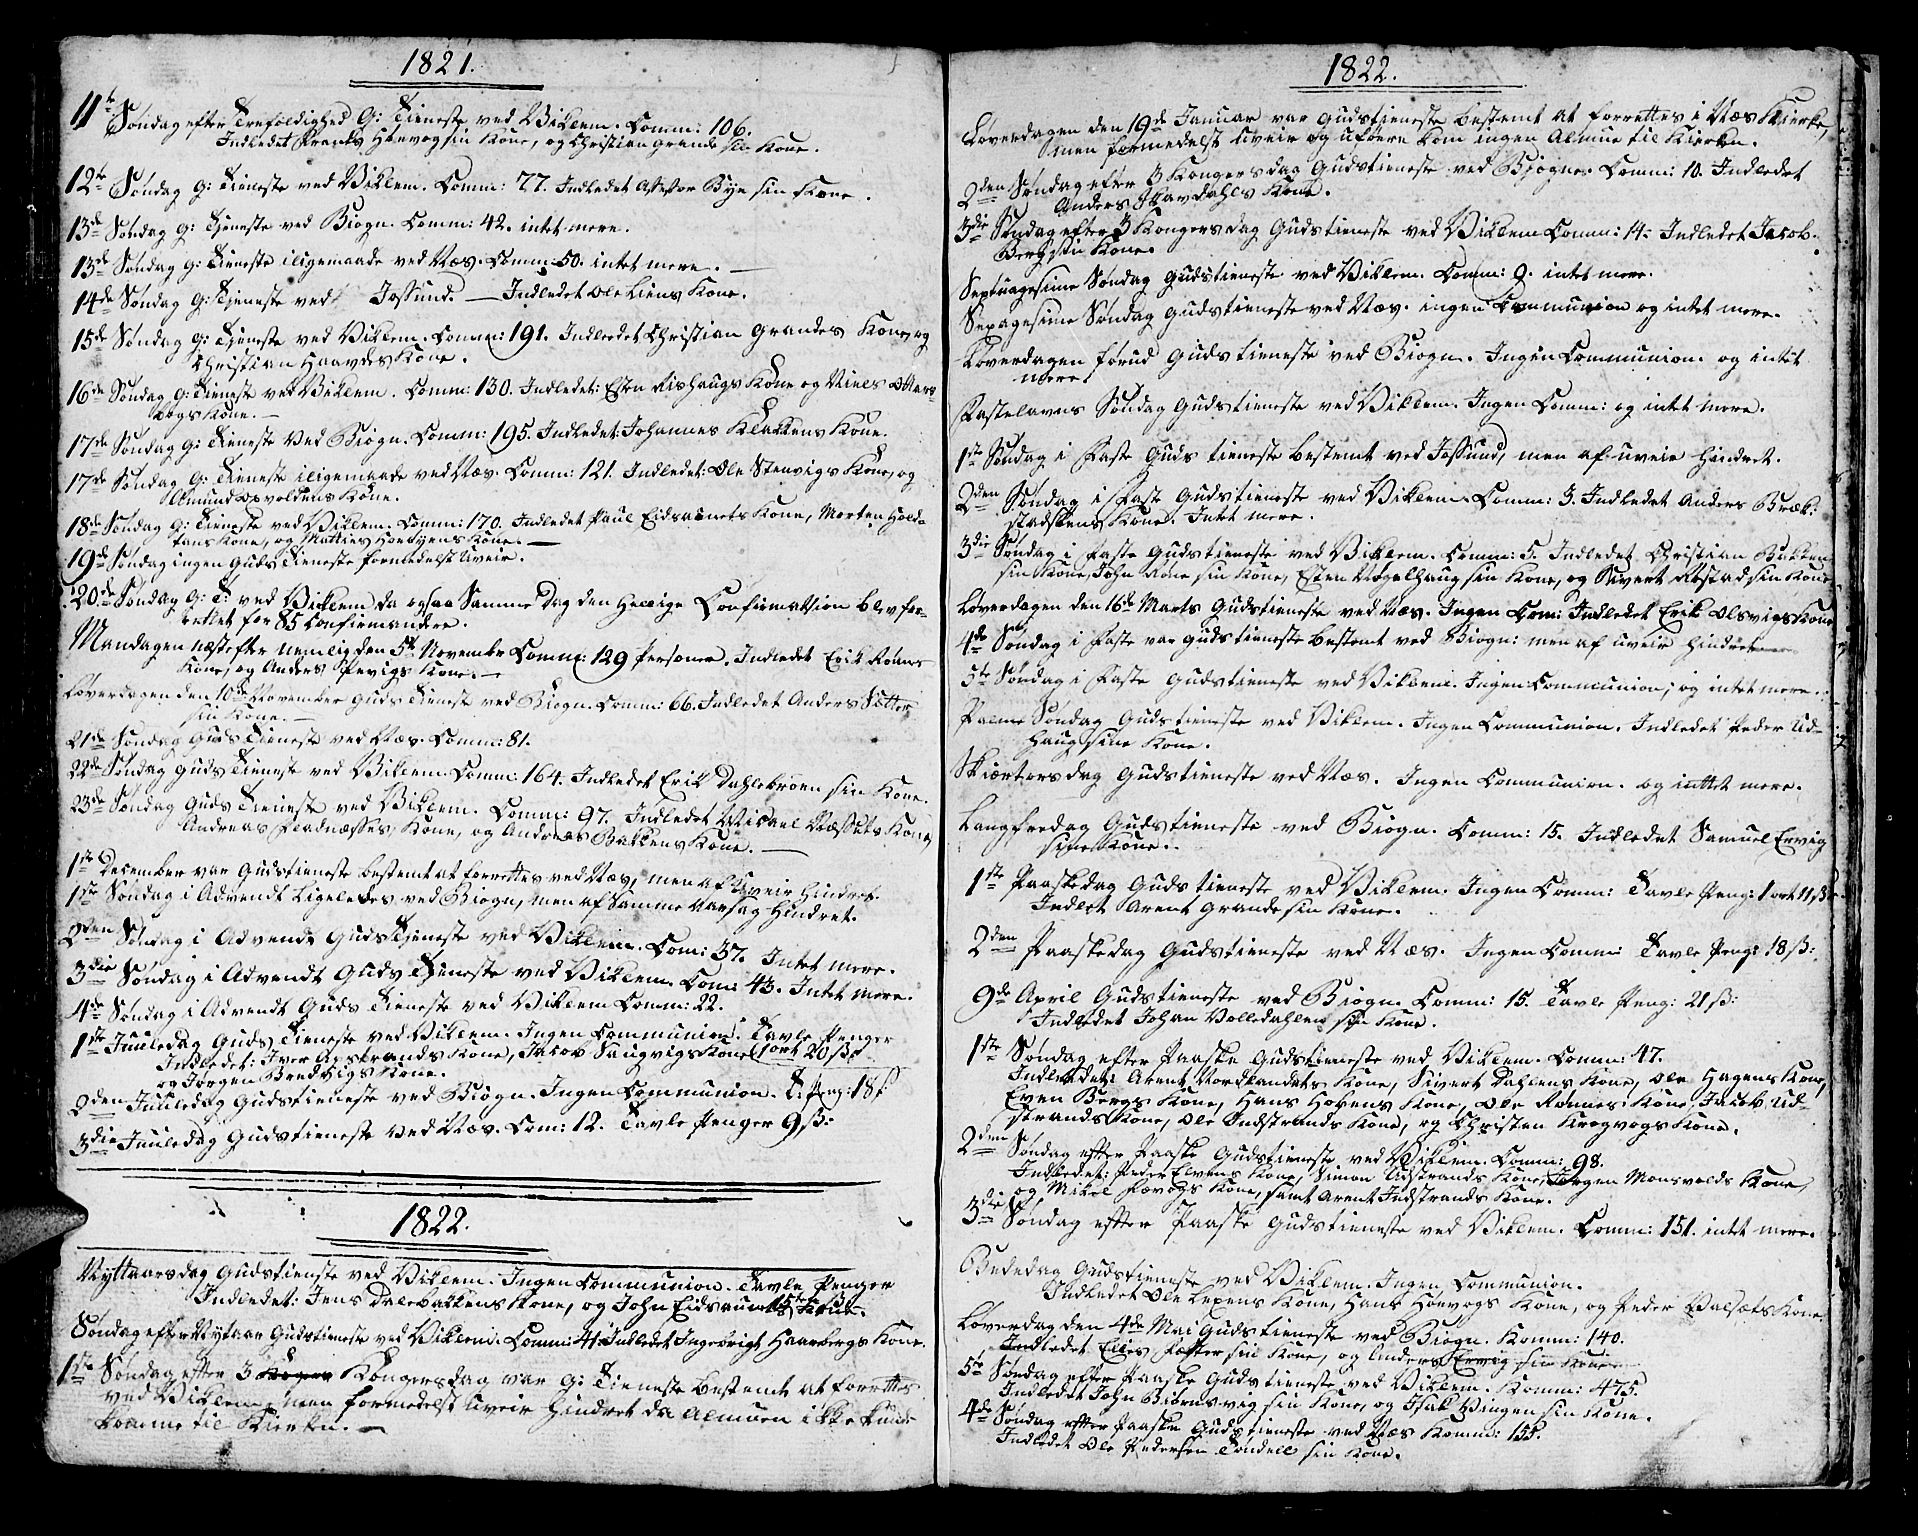 1821.
11te Søndag efter Trefoldighed G: Tieneste ved Viklem. Comm: 106.
Indledet Frants Høevog sin Kone, og Christian Grande sin Kone.
12te Søndag G: Tieneste ved Viklem. Comm: 77. Indledet Assessor Bye sin Kone.
13de Søndag G: Tjeneste ved Biogn. Comm: 42. intet mere.
13de Søndag G: Tieneste iligemaade ved Næs. Comm: 50. intet mere.
14de Søndag G: Tjeneste ved Jossund. — Indledet Ole Liens Kone.
15de Søndag G: Tjeneste ved Viklem. Comm: 191. Indledet Christian Grandes Kone, og
Christian Haavdes Kone.
16de Søndag G: Tieneste ved Viklem. Comm: 130. Indledet: Esten Rishaugs Kone og Niels Otters
bogs Kone. —
17de Søndag G: Tieneste ved Biogn. Comm: 195. Indledet: Johannes Klakkens Kone.
17de Søndag G: Tieneste iligemaade ved Næs. Comm: 121. Indledet: Ole Stenvigs Kone, og
Amund Opvoldens Kone.
18de Søndag G: Tieneste ved Viklem. Comm: 170. Indledet Paul Eidsaunets Kone, Morten Hold-
tans Kone, og Mathies Høeøyens Kone. —
19de Søndag ingen Guds Tieneste formedelst Uveir.
20de Søndag G: T: ved Viklem da ogsaa Samme Dag den Hellige Confirmation blev for-
rettet for 85 Confirmandere.
Mandagen næst efter nemlig den 5te November Comm: 129 Personer. Indledet Erik Roines
Kone, og Anders Pevigs Kone. —
Løverdagen den 10de November Guds Tieneste ved Biogn. Comm: 66. Indledet Anders Sætter
sin Kone. —
21de Søndag Guds Tieneste ved Næs. Comm: 81.
22de Søndag Guds Tieneste ved Viklem. Comm: 164. Indledet Erik Dahlebroen sin Kone.
23de Søndag Guds Tieneste ved Viklem. Comm: 97. Indledet Mickael Næssets Kone,
Andreas Fladnæsses Kone, og Andreas Bakkens Kone. —
1ste December var Gudstieneste bestemt at forrettes ved Næs, men af Uveir Hindret.
1ste Søndag i Advendt Ligeledes ved Biogn, men af Samme Aarsag Hindret.
2den Søndag i Advendt Guds Tjeneste ved Viklem. Com: 37. Intet mere.
3die Søndag i Advendt Guds Tjeneste ved Viklem. Com: 43. Intet mere.
4de Søndag i Advendt Guds Tieneste ved Viklem Comm: 22.
1ste Juuledag Guds Tieneste ved Viklem. Ingen Communion. Tavle Penger
Indledet: Iver Opstrands Kone, Jacob Saugvigs Kone 1 ort 20 ß
og Jørgen Bredvigs Kone.
2den Juuledag Gudstieneste ved Biogn. Ingen Communion. T: Peng: 18 ß
3die Juuledag Gudstieneste ved Næs. Com: 12. Tavle Penger 9 ß:
1822.
Nyttaarsdag Gudstieneste ved Viklem. Ingen Communion. Tavle Penger
Indledet: Jens Dalebakkens Kone, og John Eidsaunets Kone.
Søndag efter Nytaar Gudstieneste ved Viklem. Comm: 41. Indledet Ingebrigt Haarbergs Kone.
1ste Søndag efter 3 Kongersdag var G: Tieneste bestemt at forrettes
ved Viklem, men formedelst Uveir Hindret da Almuen ikke kunde
komme til Kierken. —
1822.
Løverdagen den 19de Januar var Gudstieneste bestemt at forrettes i Næs Kierke,
men formedelst Uveir og uføere kom ingen Almue til Kierken.
2den Søndag efter 3 Kongersdag Gudstieneste ved Bjogn. Comm: 10. Indledet
Anders Skavdahls Kone.
3die Søndag efter 3 Kongersdag Gudstieneste ved Viklem Comm: 14. Indledet Jacob
Berg sin Kone.
Septuagesime Søndag Gudstieneste ved Viklem. Comm: 9. intet mere.
Sexagesime Søndag Gudstieneste ved Næs. ingen Communion og intet mere.
Løverdagen forud Guds tieneste ved Biogn. Ingen Communion. og intet
mere.
Fastelavns Søndag Gudstieneste ved Viklem. Ingen Comm: og intet mere.
1ste Søndag i Faste Guds tieneste bestemt ved Jossund, men af uveir Hindret.
2den Søndag i Faste Gudstieneste ved Viklem. Comm: 3. Indledet Anders Bræk-
stadskens Kone. Intet mere.
3die Søndag i Faste Gudstieneste ved Viklem. Comm: 5. Indledet Christian Bakken
sin Kone, John Røne sin Kone, Esten Vogelhaug sin Kone, og Sivert Opstad sin Kone
Løverdagen den 16de Marts Gudstieneste ved Næs. Ingen Com: Indledet Erik Olsvigs Kone
4de Søndag i Faste var Gudstieneste bestemt ved Biogn: men af Uveir Hindret
5te Søndag i Faste Gudstieneste ved Viklem. Ingen Communion, og intet mere.
Palme Søndag Gudstieneste ved Viklem. Ingen Communion. Indledet Peder Ud-
haug sine Kone.
Skiærtorsdag Gudstieneste ved Næs. Ingen Communion. og inttet mere.
Langfredag Gudstieneste ved Biogn. Comm: 15. Indledet Samuel Ervig
sine Kone.
1ste Paaskedag Gudstieneste ved Viklem. Ingen Comm: Tavle Peng: 1 ort 11 ß
Indlet Arent Grande sin Kone.
2den Paaskedag Gudstieneste ved Næs. Ingen Comm: Tavle Peng: 18 ß:
9de April Gudstieneste ved Biogn. Comm: 15. Tavle Peng: 21 ß:
Indledet Johan Volledahlen sin Kone.
1ste Søndag efter Paaske Gudstieneste ved Viklem. Comm: 47.
Indledet: Arent Nordlandets Kone, Sivert Dahlens Kone, Ole Hagens Kone,
Even Bergs Kone, Hans Hovens Kone, Ole Romnes Kone, Jacob Ud-
strands Kone, Ole Indstrands Kone, og Christen Krogvogs Kone.
2den Søndag efter Paaske Gudstieneste ved Viklem. Comm: 98.
Indledet: Peder Elvens Kone, Simon Udstrands Kone, Jørgen Monsvolds Kone,
og Mikel Høevogs Kone, samt Arent Indstrands Kone.
3die Søndag efter Paaske Gudstieneste ved Viklem. Comm: 151. intet mere.
Bededag Gudstieneste ved Viklem. Ingen Communion.
Indledet Ole Lexens Kone, Hans Høevogs Kone, og Peder Valsæts Kone
Løverdag den 4de Mai Gudstieneste ved Biogn. Komm: 140.
Indledet Elies Sæther sin Kone, og Anders Ervig sin Kone
5te Søndag efter Paaske Gudstieneste ved Viklem. Komm: 475.
Indledet John Biørnsvig sin Kone, og Isak Vingen sin Kone.
4de Søndag efter Paaske Gudstieneste ved Næs Komm: 155.
Indledet Ole Pedersen Tøndell sin Kone.